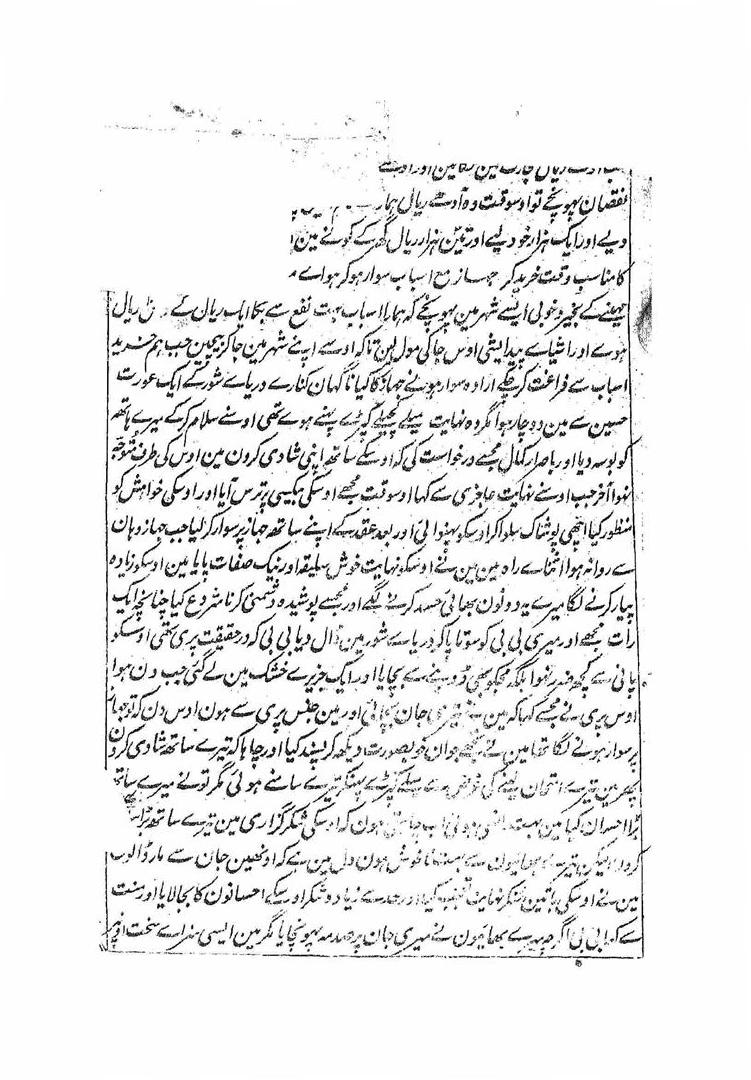 نقصان پہونچے تو اوسوقت وہ آدھے ریال ہمارے
دیے اور ایک ہزار خود لیے اور تین ہزار ریال گھر کے کونے مین
کا مناسب وقت خرید کر جہاز مع اسباب سوار ہوکر ہوا ے
مہینے کے بخیر و خوبی ایسے شہر مین پہونچے کہ ہمارا اسباب بہت نفع سے بکا ایک ریال کے ریال
ہوے اور اشیاے پیدایشی اوس جا کی مول لین تاکہ اوسے اپنے شہر مین جاکر بیچین جب ہم خرید
اسباب سے فراغت کرچکے ارادہ سوار ہونے جہاز کا کیا ناگہان کنارے دریاے شور کے ایک عورت
حسین سے مین دوچار ہوا مگر وہ نہایت میلے کچیلے کپڑے پہنے ہوے تھی اوسنے سلام کرکے میرے ہاتھ
کو بوسہ دیا اور باصرار کمال مجھسے درخواست کی کہ اوسکے ساتھ اپنی شادی کرون مین اوس کی طرف متوجہ
نہوا آخر جب اوسنے نہایت عاجزی سے کہا اوسوقت مجھے اوسکی بیکسی پر ترس آیا اور اوسکی خواہش کو
منظور کیا اچھی پوشاک سلوا کر اوسکو پہنوائی اور بعد عقد کے اپنے ساتھ جہاز پر سوار کرلیا جب جہاز وہان
سے روانہ ہوا اثناے راہ مین مین نے اوسکو نہایت خوش سلیقہ اور نیک صفات پایا مین اوسکو زیادہ
پیار کرنے لگا میرے یہ دونون بھائی حسد کرنے لگے اور مجھسے پوشیدہ دشمنی کرنا شروع کیا چنانچہ ایک
رات مجھے اور میری بی بی کو سوتا پاکر دریاے شور مین ڈال دیا بی بی کہ درحقیقت پری تھی اوسکو
پانی سے کچھ ضرر نہوا بلکہ مجکو بھی ڈوبنے سے بچایا اور ایک جزیرے خشک مین لے گئی جب دن ہوا
اوس پری نے مجھسے کہا کہ مین نے تیری جان بچائی اور مین جنس پری سے ہون اوس دن کہ تو جہاز
پر سوار ہونے لگا تھا مین نے تجھے جوان خوبصورت دیکھ کر پسند کیا اور چاہا کہ تیرے ساتھ شادی کرون
پھر مین تیرے امتحان لینے کی غرض سے میلے کپڑے پہنکر تیرے سامنے ہوئی مگر تونے میرے ساتھ
بڑا احسان کیا مین بہت ہوئی اب چاہتی ہون کہ اوسکی شکرگزاری مین تیرے ساتھ بڑا
کرون لیکن تیرے بھائیون سے بہت ناخوش ہون دل مین ہے کہ اونھین جان سے مار ڈالون
مین نے اوسکی باتین سنکر نہایت تعجب کیا اور حد سے زیادہ شکر اوسکے احسانون کا بجالایا اور منت
سے کہا بی بی اگرچہ میرے بھائیون نے میری جان پر صدمہ پہونچایا مگر مین ایسی سزاے سخت اونپر